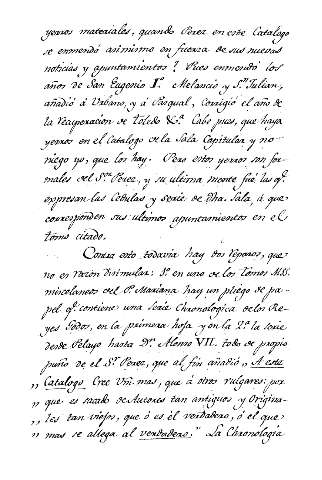 yerros materiales, quando Perez en este Catalogo
se enmendó asimismo en fuerza de sus nuevas
noticias y apuntamientos? Pues enmendó los
años de San Eugenio Iº. Melancio y Sn. Julian,
añadió á Urbano, y á Pasqual, corrigió el año de
la recuperacion de Toledo &ª. Cabe pues, que haya
yerros en el Catalogo de la Sala Capitular y no
niego yo, que los hay. Pero estos yerros son for-
males del Sor. Perez, y su ultima mente fué las qe.
expresan las Cedulas y Serie de dha. Sala, á que
corresponden sus ultimos apuntamientos en el
tomo citado.
Contra esto todavia hay dos reparos, que
no es razon disimular: 1º en uno de los tomos M.SS.
miscelaneos del P. Mariana hay un pliego de pa-
pel qe. contiene una serie Chronologica de los Re-
yes Godos, en la primera hoja y en la 2ª la serie
desde Pelayo hasta Dn. Alonso VII. todo de propio
puño de el Sr. Perez, que al fin añadió „ A este
„ Catalogo Cree Vm. mas, que á otros vulgares: por
„ que es sacado de Autores tan antiguos y Origina-
„ les tan viejos, que ó es el verdadero, ó el que
„ mas se allega al verdadero." La Chronologia